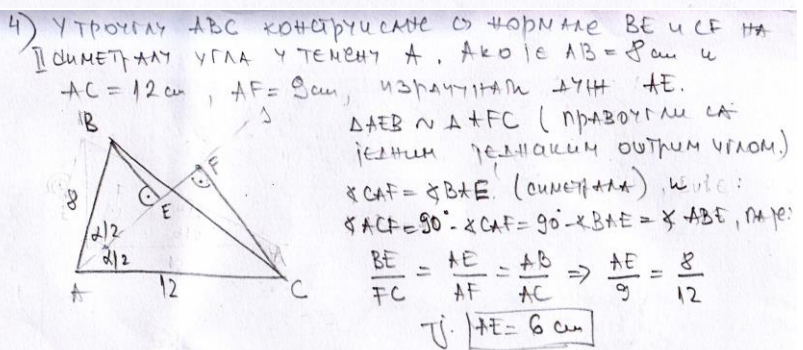 4) У троуглу ABC конструисане су нормале BE и CF на
симетралу угла у темену A. Ако је AB = 8 cm и
AC = 12 cm, AF = 9cm, израчунати дуж AE.
B
S
F
8
E
α/2
α/2
A
12
C
ΔAEB ~ ΔAFC (правоугли са
једним једнаким оштрим углом.)
∢CAF = ∢BAE. (симетрала) и више:
∢ACF = 90° - ∢CAF = 90 - ∢BAE = ∢ABE, па је:
BE/FC = AE/AF = AB/AC => AE/9 = 8/12
Tj. AE = 6 cm